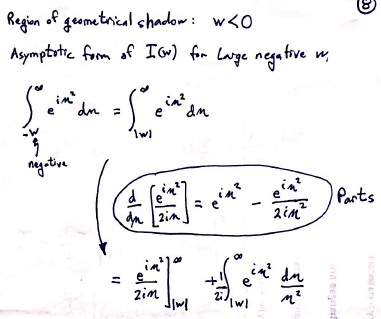 ⑧
Region of geometrical shadow: w<0
Asymptotic form of I(w) for large negative w,
∫_{-w}^{∞} e^{in²} dn = ∫_{|w|}^{∞} e^{in²} dn
negative
d/dn [e^{in²}/2in] = e^{in²} - e^{in²}/2in² Parts
= e^{in²}/2in ]_{|w|}^{∞} + 1/2i ∫_{|w|}^{∞} e^{in²} dn/n²